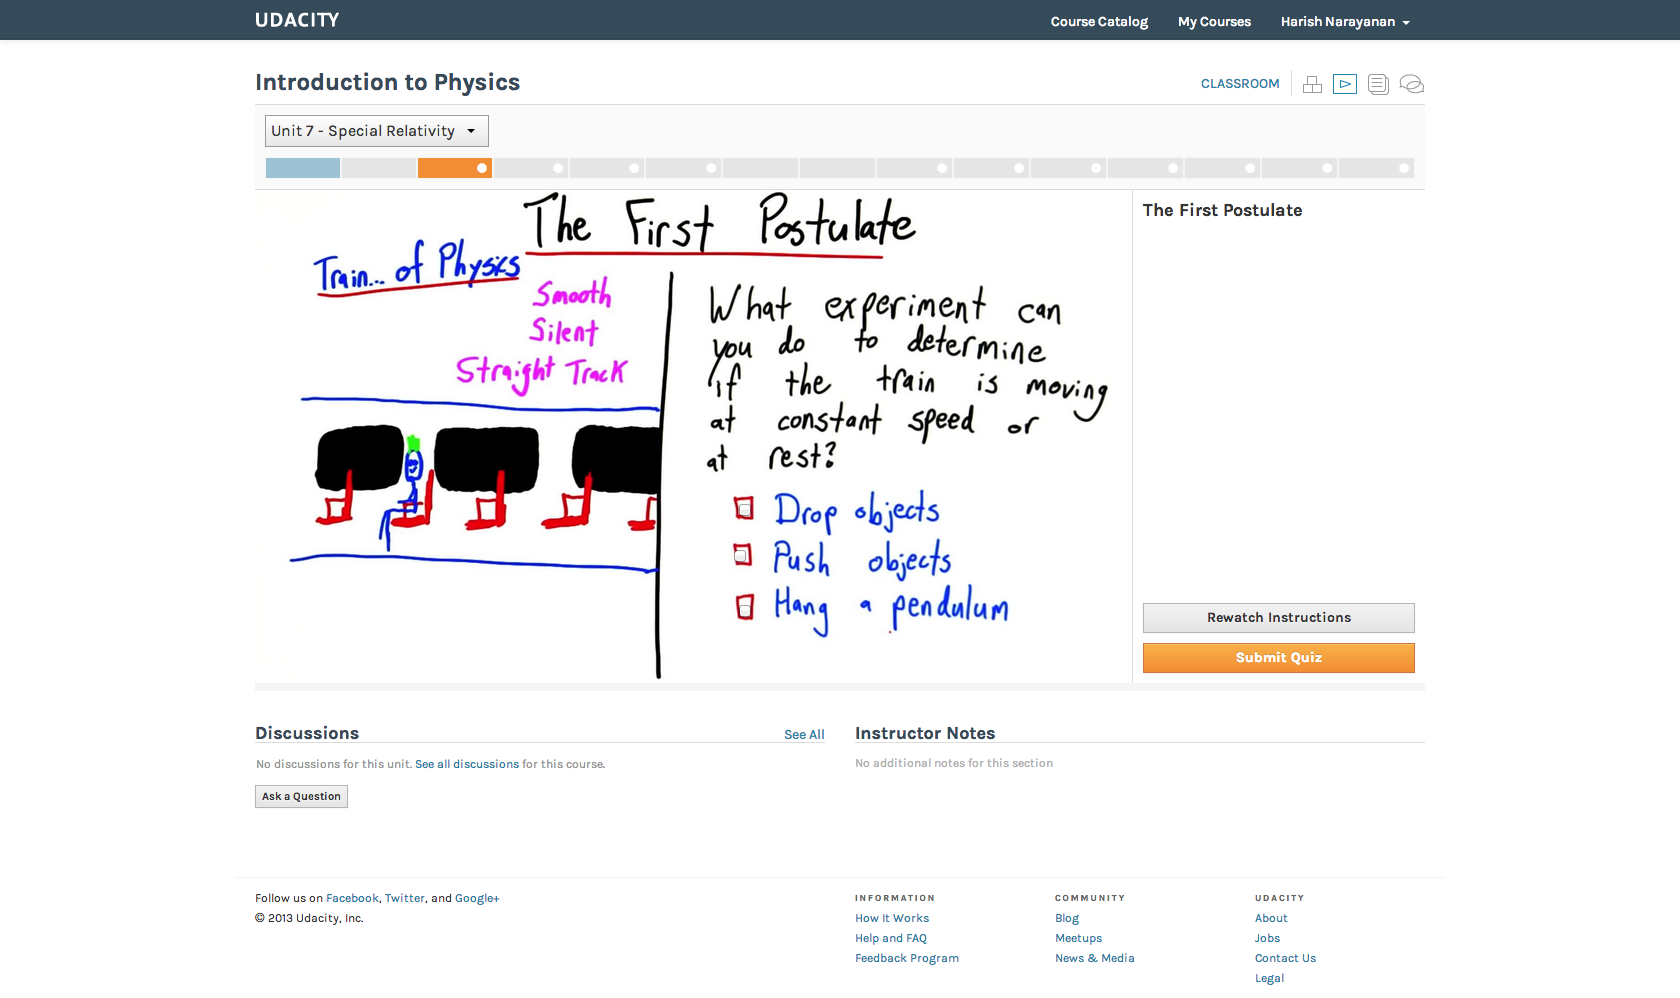 UDACITY
Course Catalog
My Courses
Harish Narayanan
Introduction to Physics
CLASSROOM
Unit 7 - Special Relativity
The First Postulate
Train... of Physics
Smooth
Silent
Straight Track
What experiment can
you do to determine
if the train is moving
at constant speed or
at rest?
Drop objects
Push objects
Hang a pendulum
The First Postulate
Rewatch Instructions
Submit Quiz
Discussions
See All
No discussions for this unit. See all discussions for this course.
Ask a Question
Instructor Notes
No additional notes for this section
Follow us on Facebook, Twitter, and Google+
© 2013 Udacity, Inc.
INFORMATION
How It Works
Help and FAQ
Feedback Program
COMMUNITY
Blog
Meetups
News & Media
UDACITY
About
Jobs
Contact Us
Legal